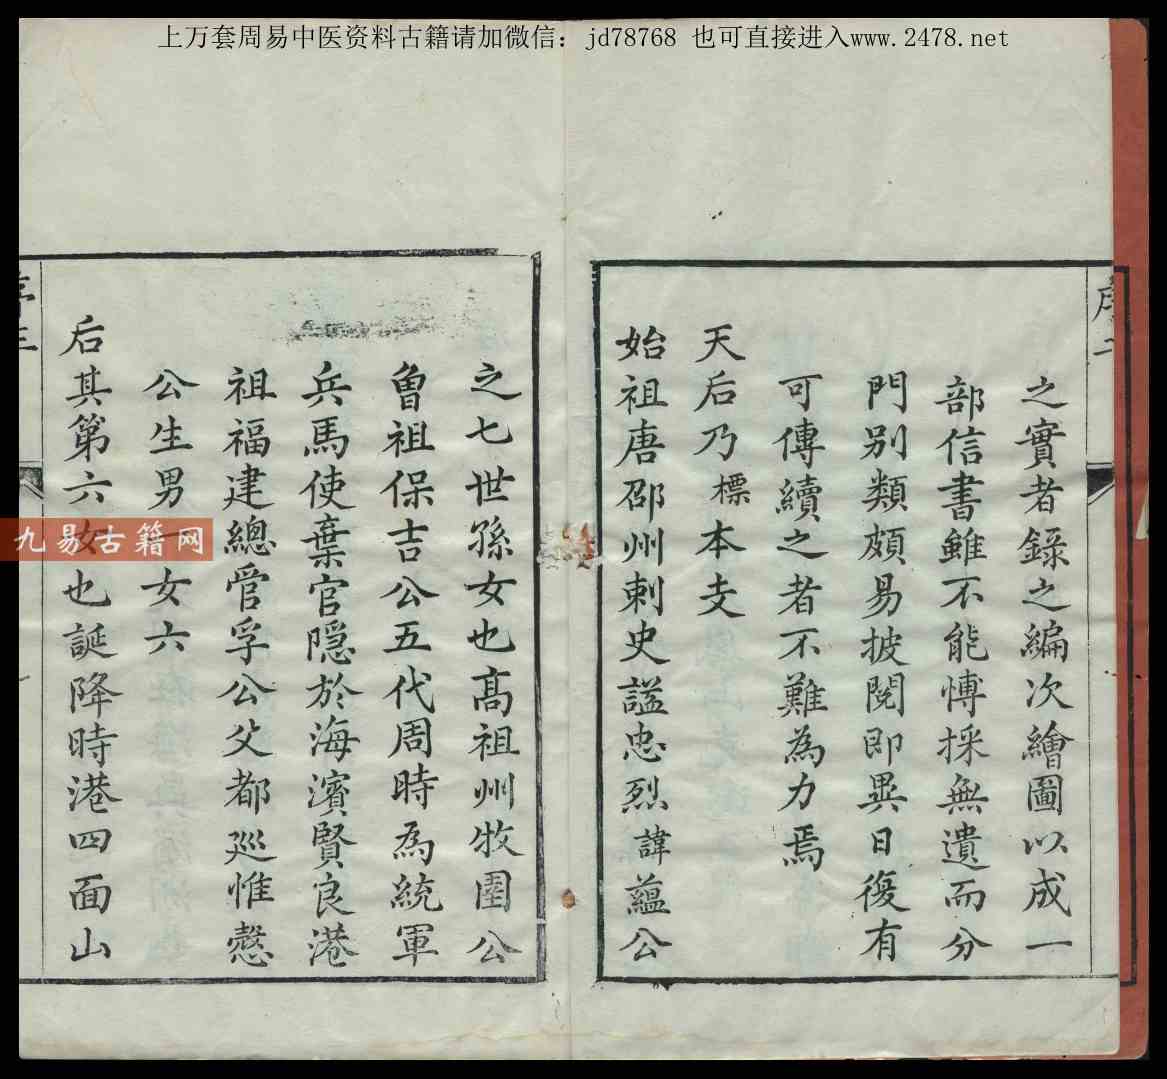 上万套周易中医资料古籍请加微信：jd78768 也可直接进入www.2478.net
序二
之實者錄之編次繪圖以成一
部信書雖不能博採無遺而分
門别類頗易披閱即異日復有
可傳續之者不難為力焉
天后乃標本支
始祖唐邵州刺史謚忠烈諱蘊公
之七世孫女也高祖州牧圉公
曾祖保吉公五代周時為統軍
兵馬使棄官隱於海濱賢良港
祖福建總管孚公父都巡惟愨
公生男一女六
后其第六女也誕降時港四面山
序三
九易古籍网